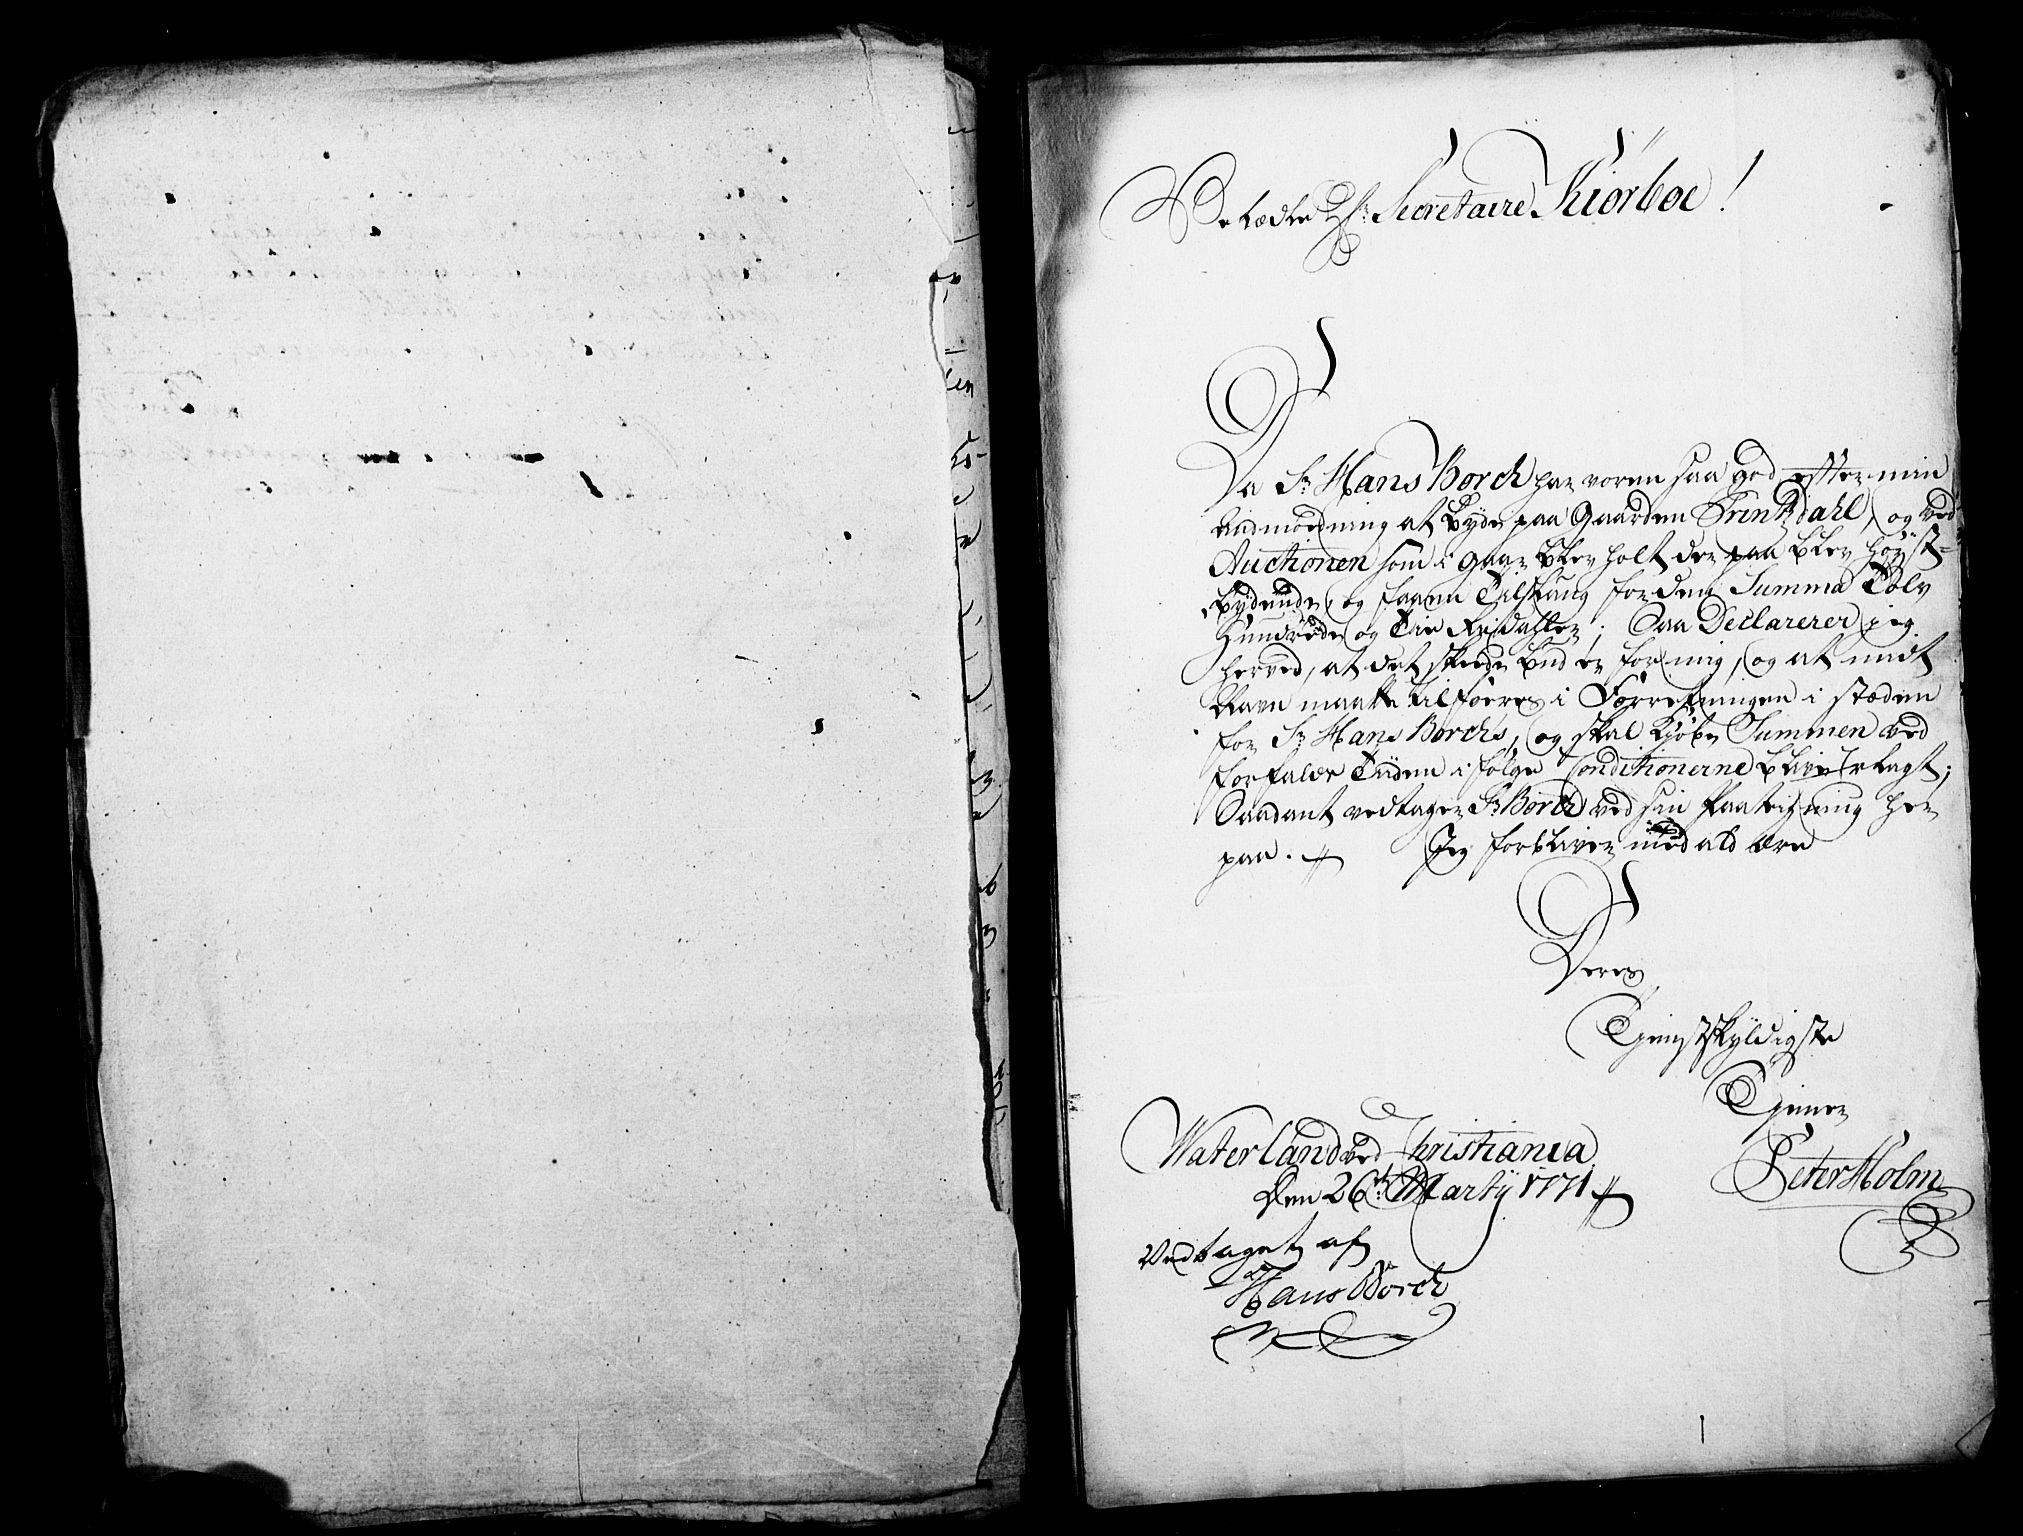 Velædle Hr. Secretaire Kiørboe!
Da Sr. Hans Borch har voren saa god efter min
Anmodning at Byde paa Gaarden Frinkdahl, og ved
Auctionen som i Gaar blev holt der paa blev høyst-
bydende, og faaen Tilslaug for den Summa Tolv
Hundrede og Tie Rixdahler; Saa Declarerer jeg
herved, at det skeede bud er for mig, og at mit
Navn maatte tilføeres i Forretningen i stæden
for Sr. Hans Borch's, og skal kjøbe Summen ved
forfalds Tiiden i følge Conditionerne blive erlagt;
Saadant vedtager Sr. Borch ved sin Paategning her
paa. Jeg forbliver med all ære
Deres
Tjenstskyldigste
Tjener
Peter Holm
Waterland ved Christiania
Den 26de Martij 1771
Vedtaget af
Hans Borch